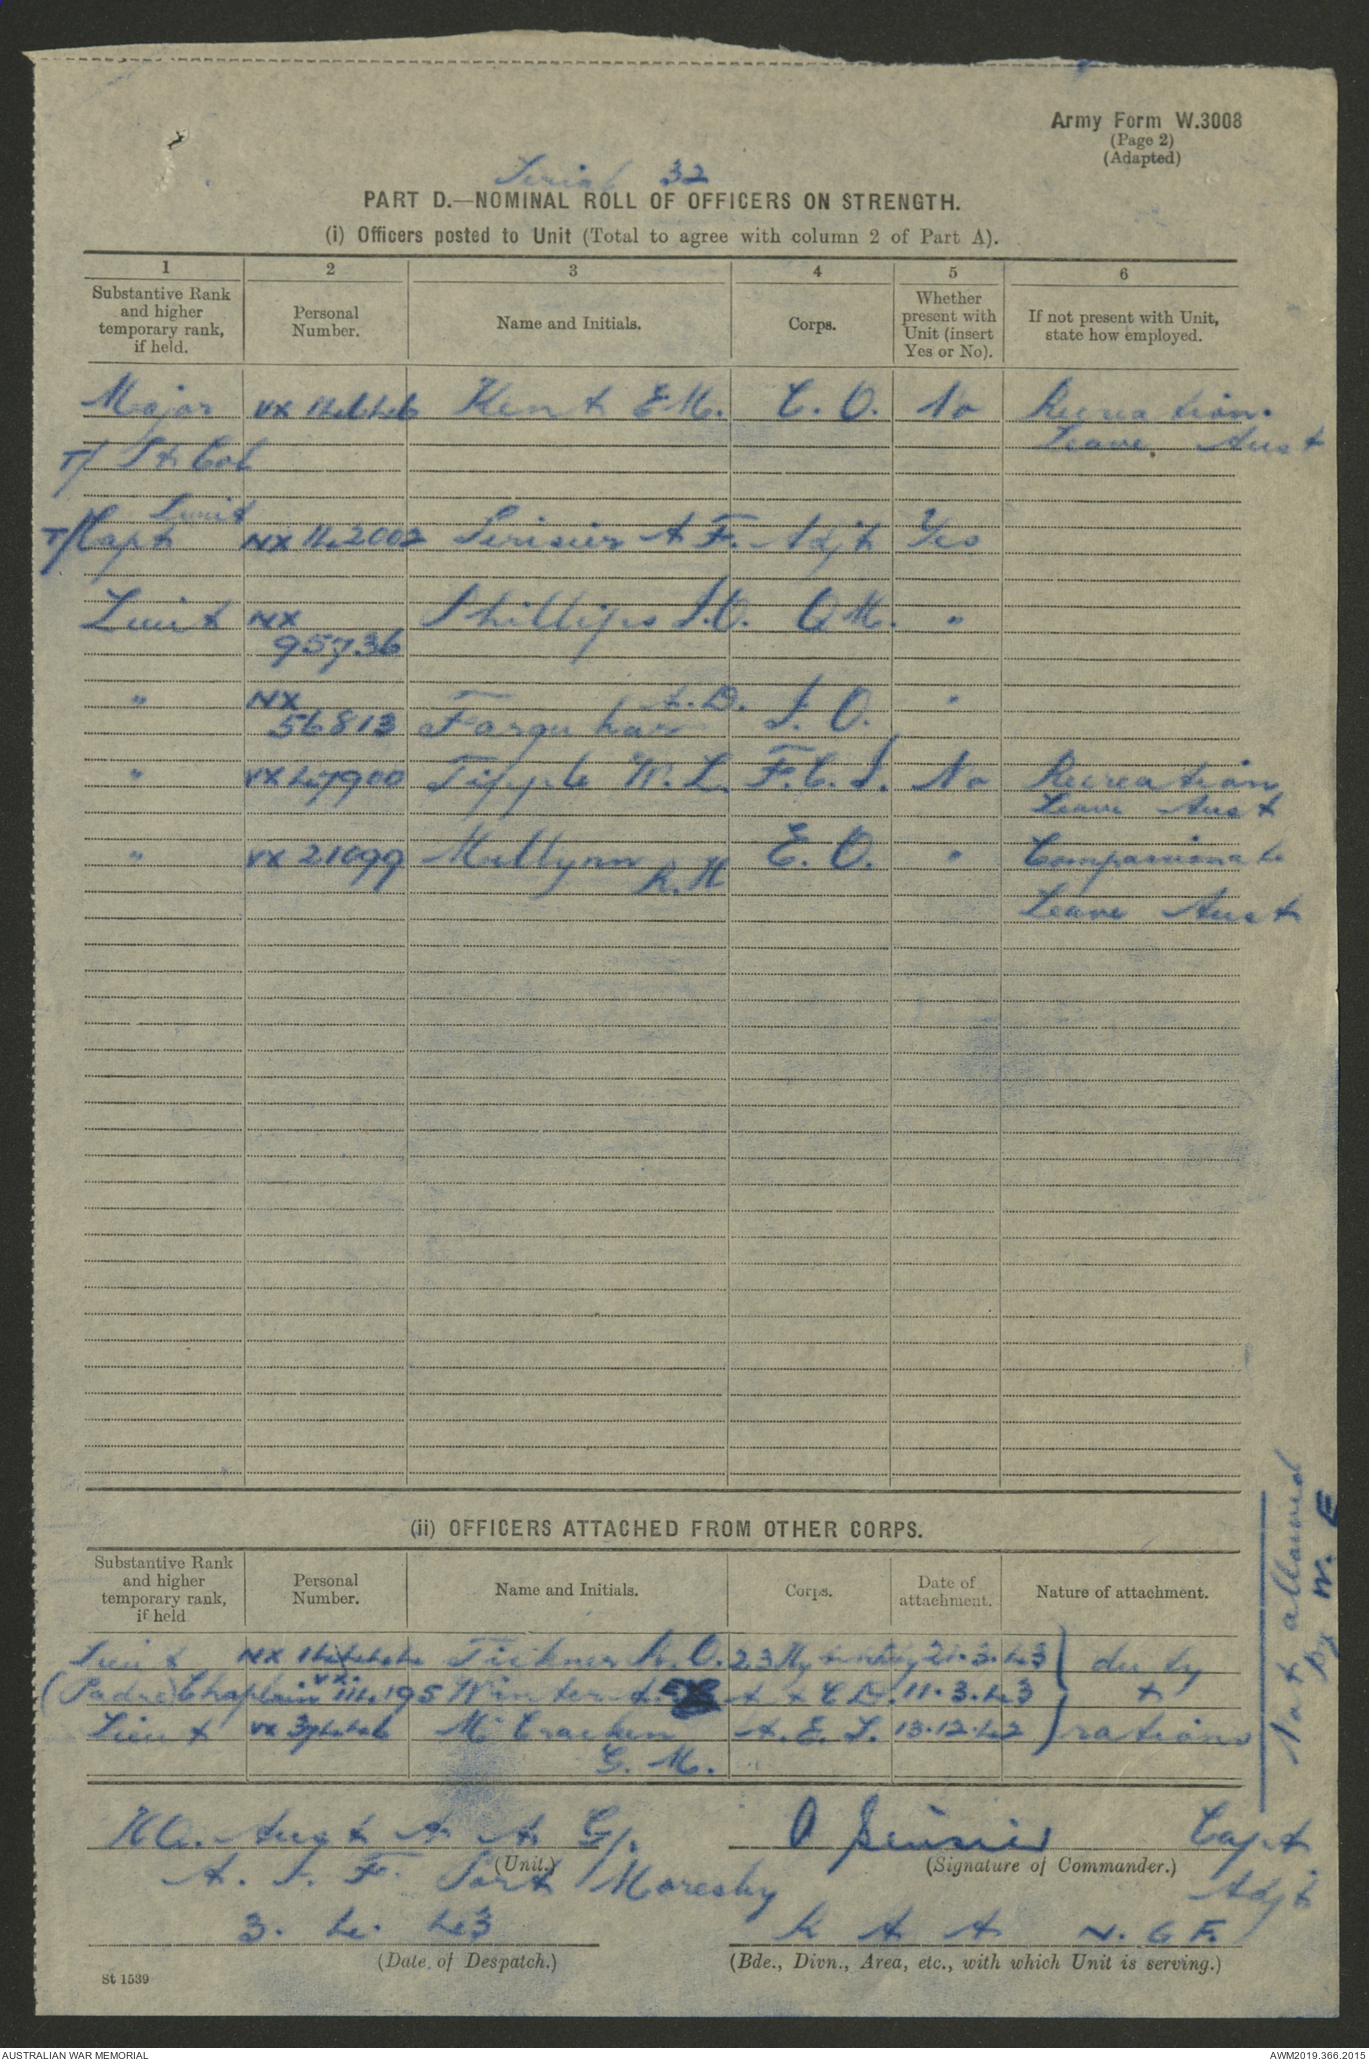 Army Form W.3008
(Page 2)
(Adapted)
Serial 32
PART D.—NOMINAL ROLL OF OFFICERS ON STRENGTH.
(i) Officers posted to Unit (Total to agree with column 2 of Part A).
1 2 3 4 5 6
Substantive Rank and higher temporary rank, if held. Personal Number. Name and Initials. Corps. Whether present with Unit (insert Yes or No). If not present with Unit, state how employed.
Major VX Kent E.M. C. O. No Recreation.
Leave, Aust
T/ Lt Col
Lieut
T/Capt NX 142002 Serisier A F. Adjt Yes
Lieut NX Phillips S.O. Q M. "
95736
" NX A.D. I. O. "
56813 Farquhar
" VX 47900 Tipple W. L. F.C.I. No Recreation
Leave Aust
" VX 21099 E. O. " Compassionate
R. H
Leave Aust
(ii) OFFICERS ATTACHED FROM OTHER CORPS.
Substantive Rank and higher temporary rank, if held Personal Number. Name and Initials. Corps. Date of attachment. Nature of attachment.
Lieut NX Tickner A. O. 23 Hy Bty 21.3.43 duty
(Padre) Chaplain VX 114195 Winter A. A A C D. 11.3.43 +
Lieut VX 37446 McCracken A. E. S. 13.12.42 rations
G. M.
Not allowed
by W. E
HQ. Aust A A Gp. A Serisier Capt
(Unit.) (Signature of Commander.)
A. I. F. Port Moresby Adjt
3. 4. 43 R A A N. G F.
(Date of Despatch.) (Bde., Divn., Area, etc., with which Unit is serving.)
St 1539
AUSTRALIAN WAR MEMORIAL AWM2019.366.2015